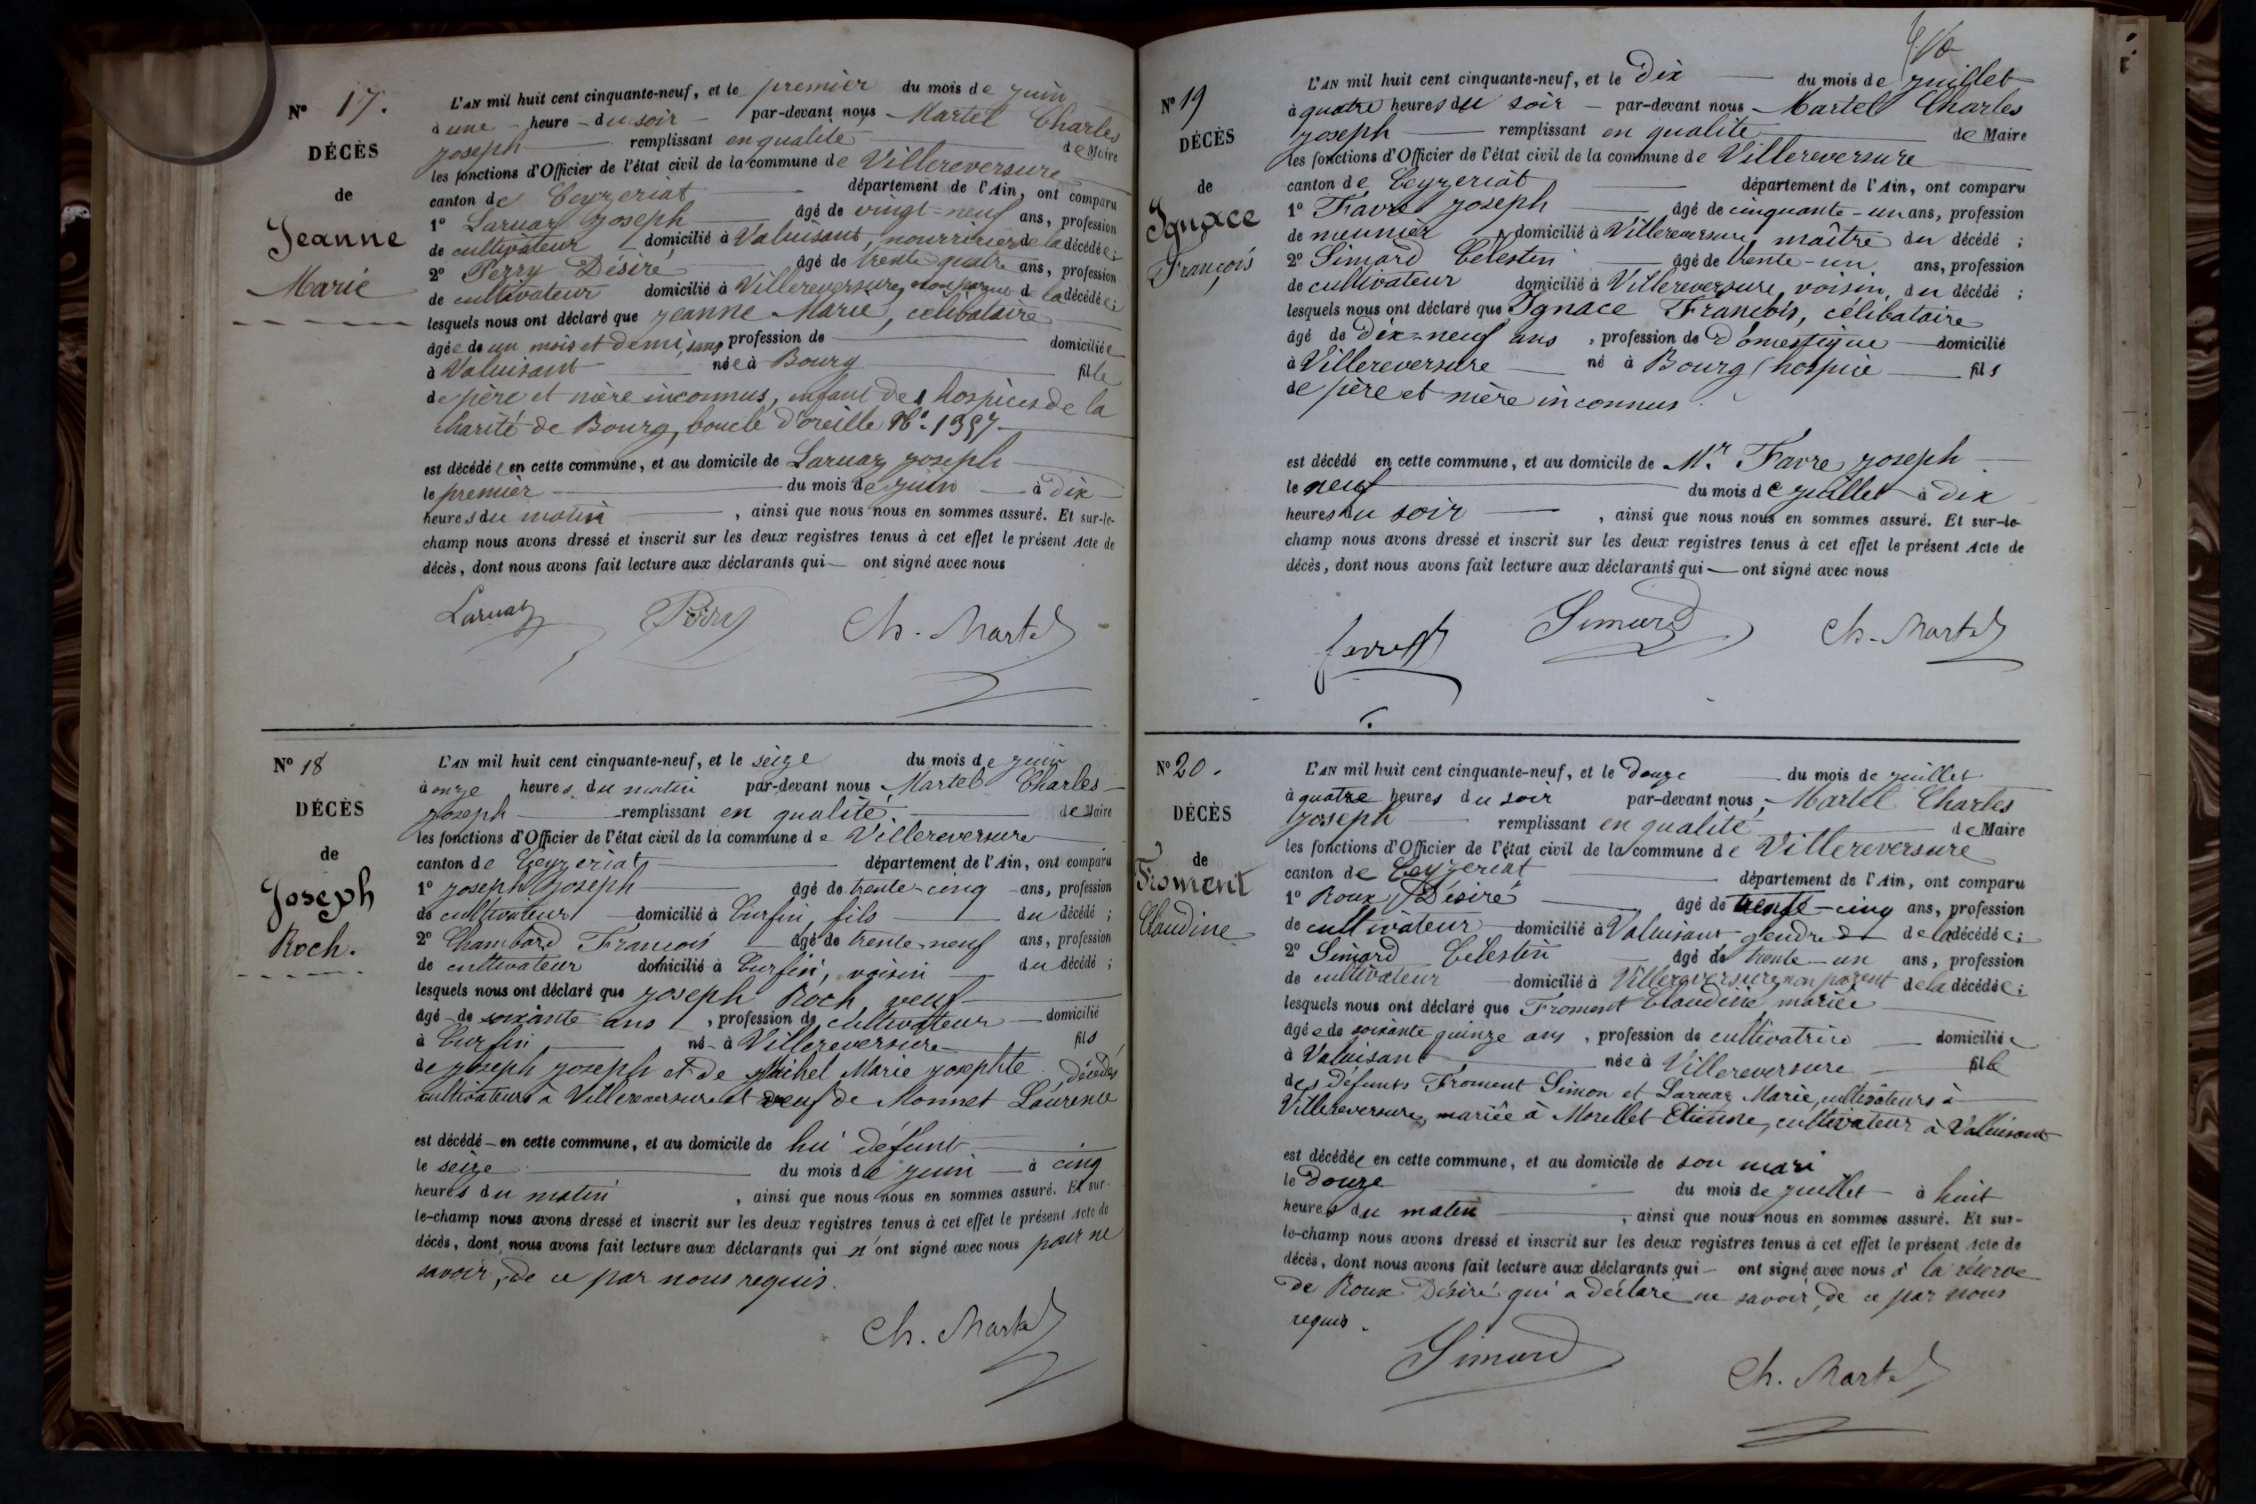 N° 17.
DÉCÈS
de
Jeanne
Marie
L'AN mil huit cent cinquante-neuf, et le premier du mois de juin
à une heure du soir par-devant nous Martel Charles
Joseph remplissant en qualité de Maire
les fonctions d'Officier de l'état civil de la commune de Villereversure
canton de Ceyzeriat département de l'Ain, ont comparu
1° Laruaz Joseph âgé de vingt-neuf ans, profession
de cultivateur domicilié à Valuisant, nourricier de la décédée;
2° Perry Désiré âgé de trente quatre ans, profession
de cultivateur domicilié à Villereversure, non parent de la décédée;
lesquels nous ont déclaré que Jeanne Marie, célibataire
âgée de un mois et demi, sans profession de domiciliée
à Valuisant née à Bourg fille
de père et mère inconnus, enfant des hospices de la
charité de Bourg, boucle d'oreille N°. 1397
est décédée en cette commune, et au domicile de Laruaz Joseph
le premier du mois de juin à dix
heures du matin, ainsi que nous nous en sommes assuré. Et sur-le-
champ nous avons dressé et inscrit sur les deux registres tenus à cet effet le présent Acte de
décès, dont nous avons fait lecture aux déclarants qui ont signé avec nous
Laruaz Perry Ch. Martel
N° 18
DÉCÈS
de
Joseph
Roch.
L'AN mil huit cent cinquante-neuf, et le seize du mois de juin
à onze heures du matin par-devant nous Martel Charles
Joseph remplissant en qualité de Maire
les fonctions d'Officier de l'état civil de la commune de Villereversure
canton de Ceyzeriat département de l'Ain, ont comparu
1° Joseph Joseph âgé de trente-cinq ans, profession
de cultivateur domicilié à Curfin, fils du décédé;
2° Chambard François âgé de trente-neuf ans, profession
de cultivateur domicilié à Curfin, voisin du décédé;
lesquels nous ont déclaré que Joseph Roch, veuf
âgé de soixante ans, profession de cultivateur domicilié
à Curfin né à Villereversure fils
de Joseph Joseph et de Marie Josephte décédés
cultivateurs à Villereversure et veuf de Monnet Laurence
est décédé en cette commune, et au domicile de lui défunt
le seize du mois de juin à cinq
heures du matin, ainsi que nous nous en sommes assuré. Et sur-
le-champ nous avons dressé et inscrit sur les deux registres tenus à cet effet le présent Acte de
décès, dont nous avons fait lecture aux déclarants qui n'ont signé avec nous pour ne
savoir, de ce par nous requis.
Ch. Martel
N° 19
DÉCÈS
de
Ignace
François
L'AN mil huit cent cinquante-neuf, et le dix du mois de juillet
à quatre heures du soir par-devant nous Martel Charles
Joseph remplissant en qualité de Maire
les fonctions d'Officier de l'état civil de la commune de Villereversure
canton de Ceyzeriat département de l'Ain, ont comparu
1° Favre Joseph âgé de cinquante-un ans, profession
de meunier domicilié à Villereversure, maître du décédé;
2° Simard Célestin âgé de trente-un ans, profession
de cultivateur domicilié à Villereversure, voisin du décédé;
lesquels nous ont déclaré que Ignace François, célibataire
âgé de dix-neuf ans, profession de Domestique domicilié
à Villereversure né à Bourg (hospice fils
de père et mère inconnus
est décédé en cette commune, et au domicile de Mr. Favre Joseph
le neuf du mois de juillet à dix
heures du soir, ainsi que nous nous en sommes assuré. Et sur-le-
champ nous avons dressé et inscrit sur les deux registres tenus à cet effet le présent Acte de
décès, dont nous avons fait lecture aux déclarants qui ont signé avec nous
Simard Ch. Martel
N° 20.
DÉCÈS
de
Froment
Claudine
L'AN mil huit cent cinquante-neuf, et le douze du mois de juillet
à quatre heures du soir par-devant nous, Martel Charles
Joseph remplissant en qualité de Maire
les fonctions d'Officier de l'état civil de la commune de Villereversure
canton de Ceyzeriat département de l'Ain, ont comparu
1° Roux Désiré âgé de trente-cinq ans, profession
de cultivateur domicilié à Valuisant gendre de la décédée;
2° Simard Célestin âgé de trente-un ans, profession
de cultivateur domicilié à Villereversure non parent de la décédée;
lesquels nous ont déclaré que Froment Claudine mariée
âgée de soixante quinze ans, profession de cultivatrice domiciliée
à Valuisant née à Villereversure fille
des défunts Froment Simon et Laruaz Marie, cultivateurs à
Villereversure, mariée à Morellet Etienne, cultivateur à Valluisant
est décédée en cette commune, et au domicile de son mari
le Douze du mois de juillet à huit
heures du matin, ainsi que nous nous en sommes assuré. Et sur-
le-champ nous avons dressé et inscrit sur les deux registres tenus à cet effet le présent Acte de
décès, dont nous avons fait lecture aux déclarants qui ont signé avec nous à la réserve
de Roux Désiré qui a déclaré ne savoir, de ce par nous
requis.
Simard Ch. Martel